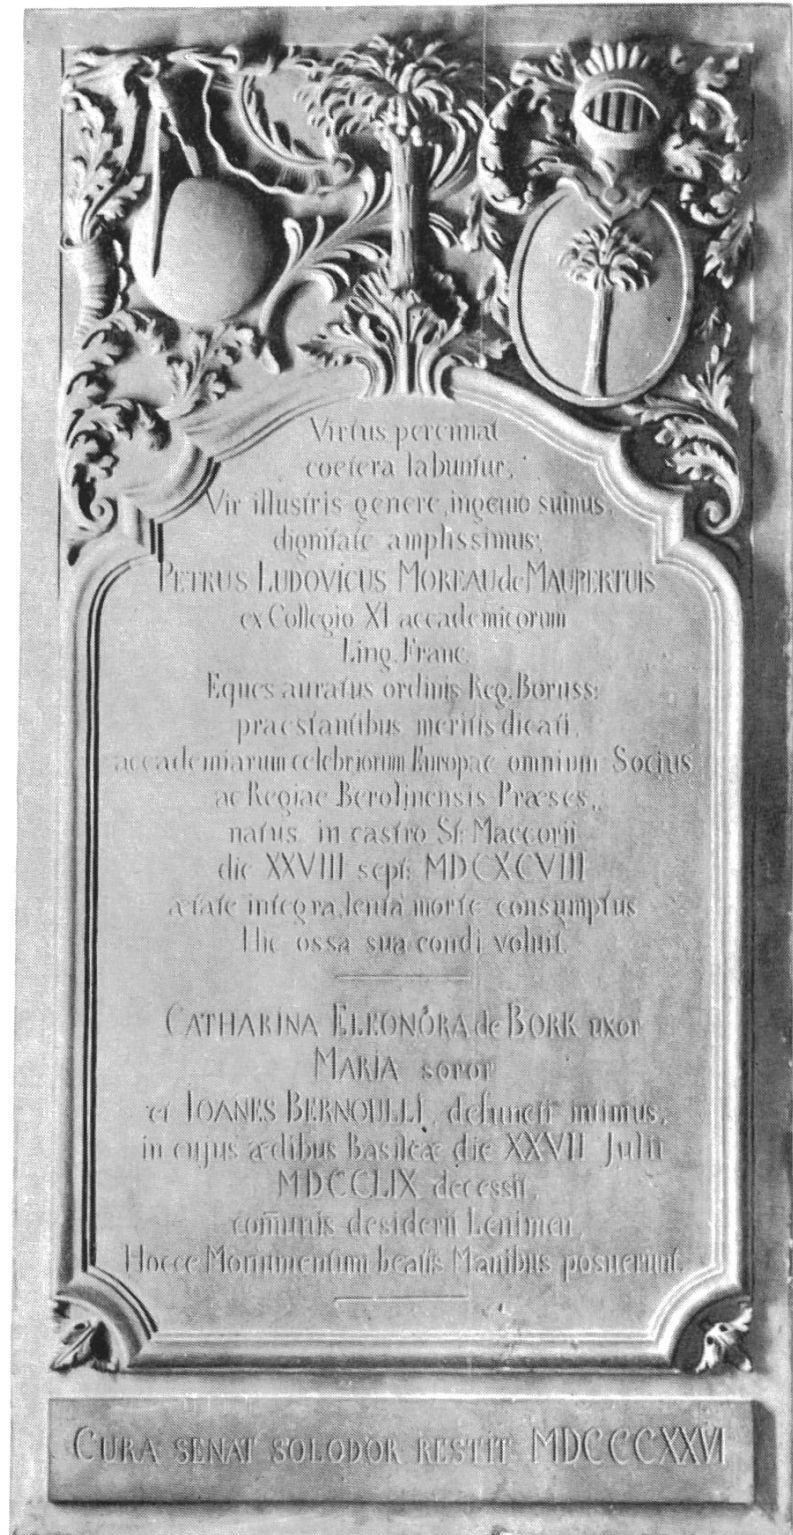 Virtus perennat
coetera labuntur,
Vir illustris genere, ingenio suMus,
dignitate amplissimus;
PETRUS LUDOVICUS MOREAU de MAUPERTUIS
ex Collegio XL accademicorum
Ling. Franc.
Eques auratus ordinis Reg. Boruss:
praestantibus meritis dicati,
accademiarum celebriorum Europae omnium Socius
ac Regiae Berolinensis Præses,
natus in castro St: Maccorii
die XXVIII sept: MDCXCVIII
ætate integra, lenta morte consumptus
Hic ossa sua condi voluit.
CATHARINA ELEONORA de BORK uxor
MARIA soror
et IOANES BERNOULLI, defuncti intimus,
in cujus ædibus Basileæ die XXVII Julii
MDCCLIX decessit,
com̄unis desiderii Lenimen,
Hocce Monumentum beatis Manibus posuerunt.
CURA SENAT SOLODOR RESTIT MDCCCXXVI